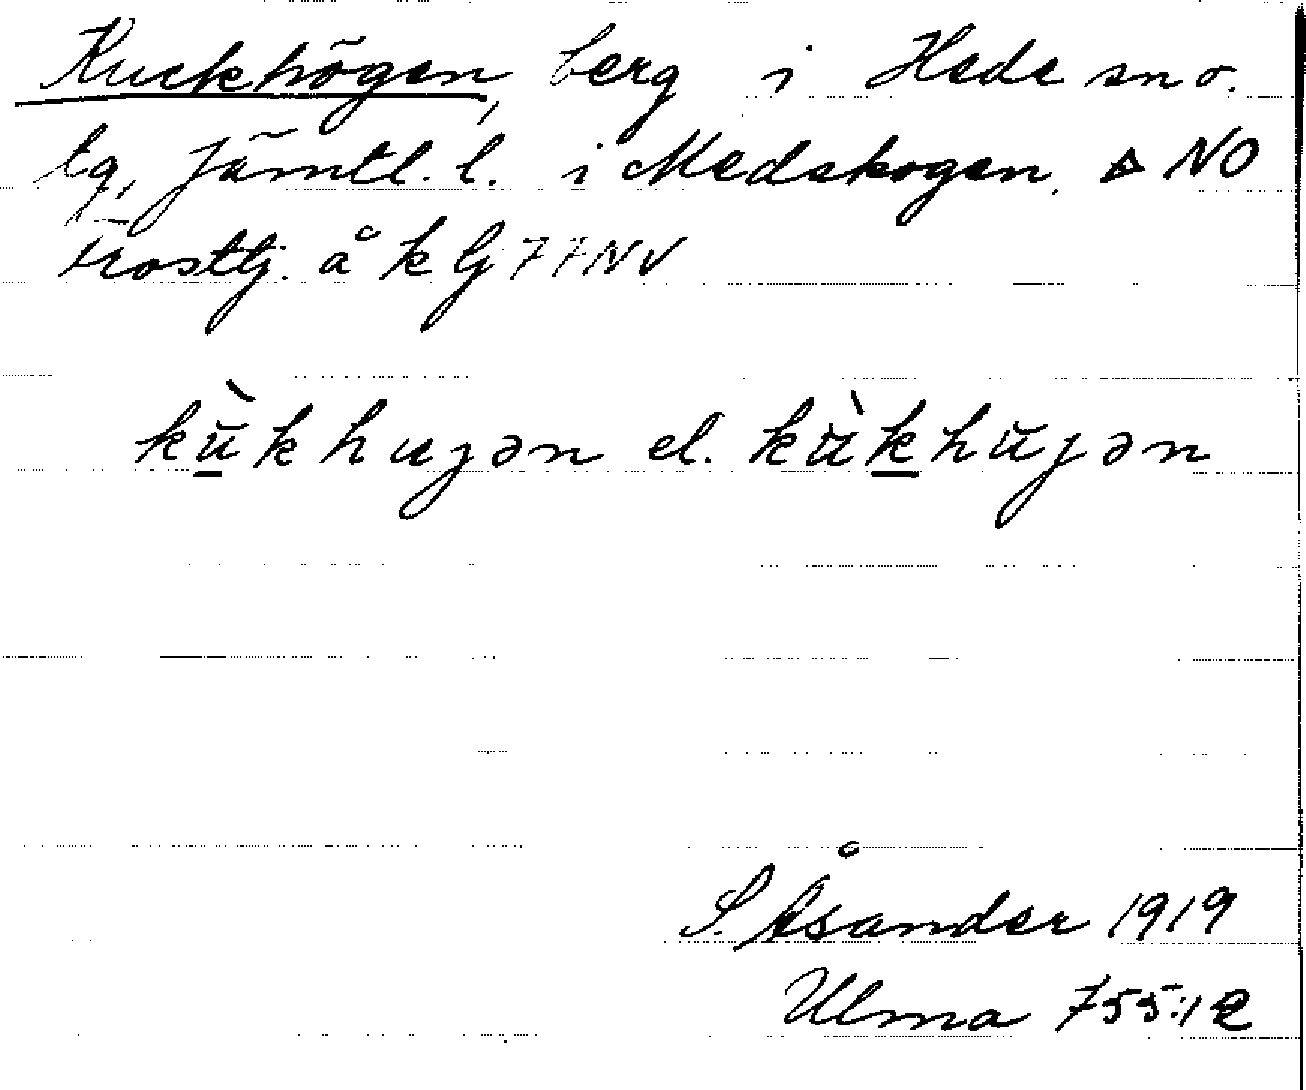 Kuckhögen, berg i Hede sn o.
tg, Jämtl. l. i Medskogen. △ NO
Frosttj. å kbj 77NV
kù̱k hujən el. kùḵhŭjən
S. Åsander 1919
Ulma 755:12